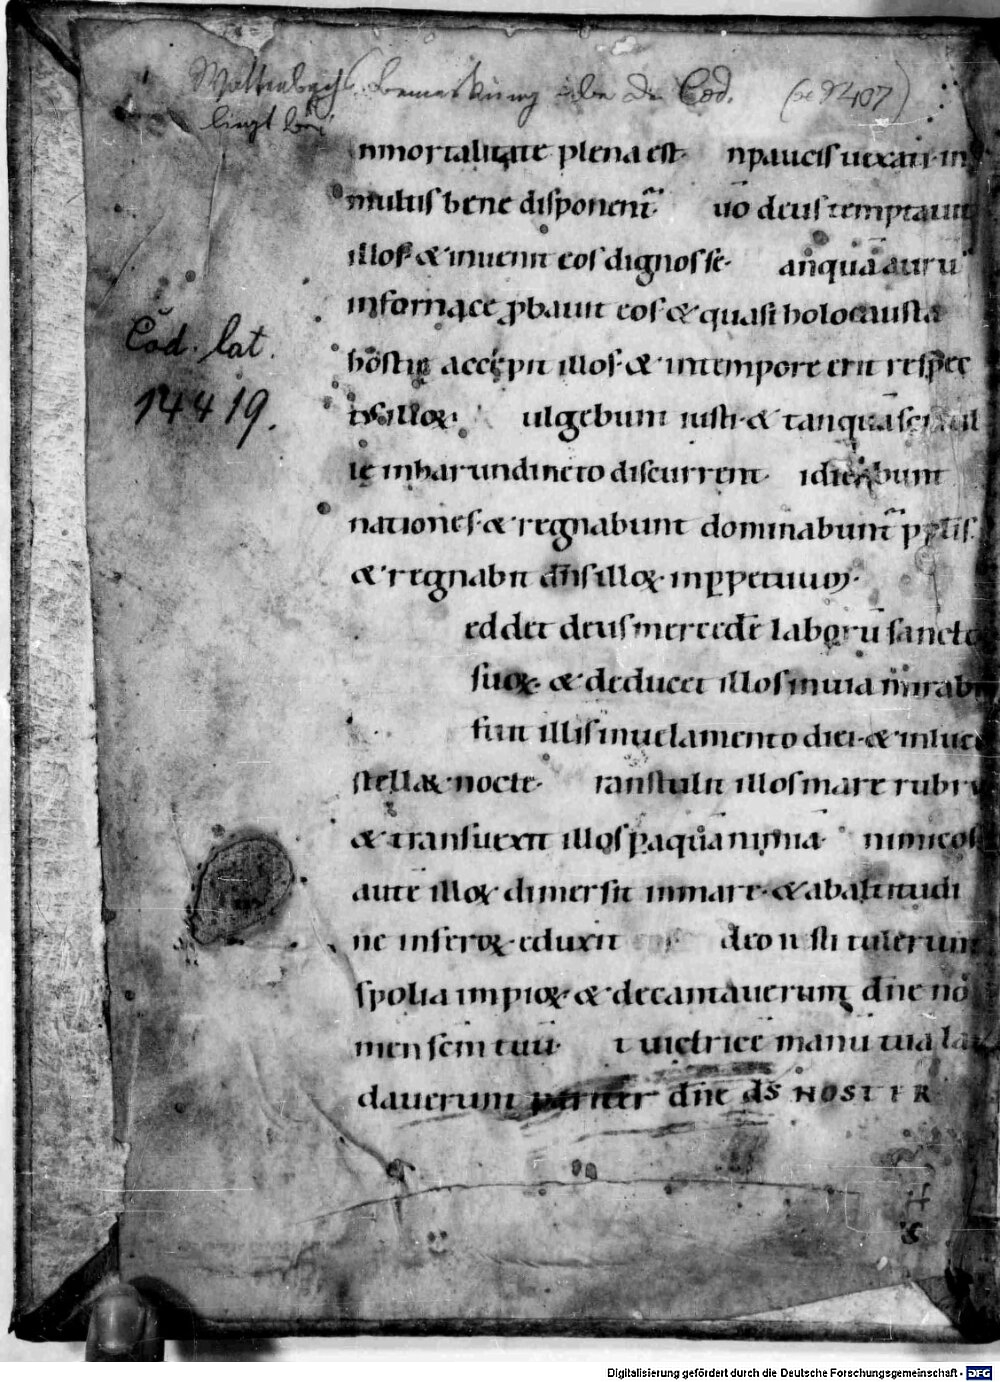 Wattenbachs Bemerkung über den Cod. (se 9407)
liegt bei
nmortalitate plena est· npaucis uexati· in
multis bene disponent̄· m̄o deus temptauit
illos & inuenit eos dignos se· anquā aurū
infornace ꝓbauit eos & quasi holocausta
hostię accępit illos· & intempore erit respec
tus illoꝝ· ulgebunt iusti· & tanquā scintil
lę inharundineto discurrent· idicabunt
nationes· & regnabunt dominabunt̄ pplis·
& regnabit dn̄s illoꝝ· inꝑpetuum·
eddet deus mercedē laborū sancto
suoꝝ· & deducet illos inuia mirab
fuit illis inuelamento diei· & inluce
stellaꝝ nocte· ranstulit illos mare rubrū
& transuexit illos ꝑaquā nimiā· nimicos
autē illoꝝ dimersit inmare· & abaltitudi
ne inferoꝝ· eduxit deo iusti tulerunt
spolia impioꝝ· & decantauerunt dn̄e no
men sc̄m tuū· t uictricē manū tuā lau
dauerunt pariter dn̄e ds̄ NOSTER
Cod. lat.
14419.
Digitalisierung gefördert durch die Deutsche Forschungsgemeinschaft - DFG